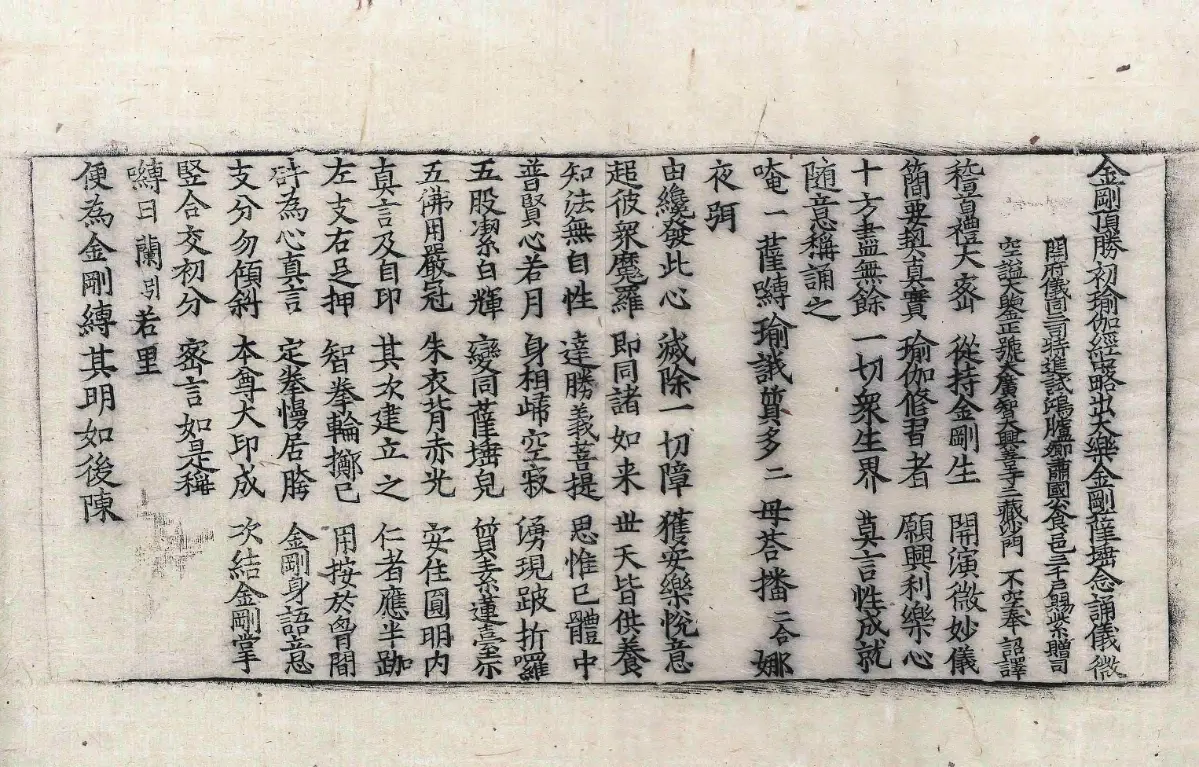 金剛頂勝初瑜伽經略出大樂金剛薩埵念誦儀 微
開府儀同三司特進試鴻臚卿肅國公食邑三千户賜紫贈司
空謚大鑒正號大廣智大興善寺三藏沙門 不空奉 詔譯
稽首禮大密 從持金剛生 開演微妙儀
簡要摽真實 瑜伽修習者 願興利樂心
十方盡無餘 一切衆生界 莫言性成就
隨意稱誦之
唵一薩嚩瑜誐質多二母荅播二合娜
夜弭
由纔發此心 滅除一切障 獲安樂悅意
超彼衆魔羅 即同諸如来 世天皆供養
知法無自性 達勝義菩提 思惟已體中
普賢心若月 身相歸空寂 湧現跛折囉
五股潔白輝 變同薩埵皃 質素蓮臺示
五佛用嚴冠 朱衣背赤光 安住圓明内
真言及自印 其次建立之 仁者應半跏
左支右足押 智拳輪擲已 用按於胷間
𤙖為心真言 定拳慢居胯 金剛身語意
支分勿傾斜 本尊大印成 次結金剛掌
竪合交初分 密言如是稱
嚩日蘭引若里
便為金剛縛其明如後陳